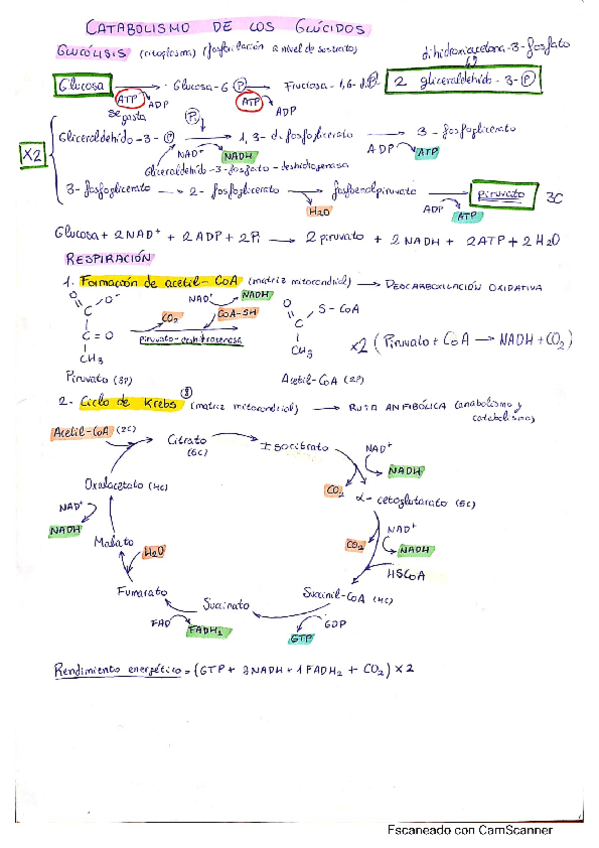 CATABOLISMO DE LOS GLÚCIDOS
GLUCÓLISIS (citoplasma) (fosforilación a nivel de sustrato)
dihidroxiacetona-3-fosfato
Glucosa → Glucosa-6 P → Fructosa-1,6- 2 gliceraldehído-3-P
ATP ADP ATP ADP
se gasta
X2
Gliceraldehído-3-P → 1,3-difosfoglicerato → 3-fosfoglicerato
P NAD⁺ NADH ADP ATP
Gliceraldehído-3-fosfato-deshidrogenasa
3-fosfoglicerato → 2-fosfoglicerato → fosfoenolpiruvato → piruvato 3C
H₂O ADP ATP
Glucosa + 2NAD⁺ + 2ADP + 2Pi → 2 piruvato + 2NADH + 2ATP + 2H₂O
RESPIRACIÓN
1. Formación de acetil-CoA (matriz mitocondrial) → DESCARBOXILACIÓN OXIDATIVA
O O⁻ C C=O CH₃
NAD⁺ NADH
CO₂ CoA-SH
piruvato-deshidrogenasa
O S-CoA C CH₃
x2 (Piruvato + CoA → NADH + CO₂)
Piruvato (3C) Acetil-CoA (2C)
2- Ciclo de Krebs (matriz mitocondrial) → RUTA ANFIBÓLICA (anabolismo y
catabolismo)
Acetil-CoA (2C)
Citrato
(6C)
Isocitrato
NAD⁺
NADH
CO₂
α-cetoglutarato (5C)
NAD⁺
CO₂
NADH
HSCoA
Succinil-CoA (4C)
GDP
GTP
Succinato
FAD
FADH₂
Fumarato
H₂O
Malato
NAD⁺
NADH
Oxalacetato (4C)
Rendimiento energético = (GTP + 3NADH + 1FADH₂ + CO₂) X2
Escaneado con CamScanner